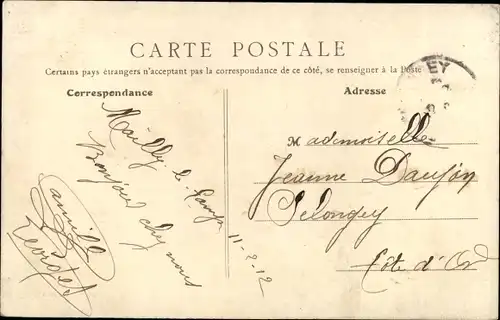 CARTE POSTALE
Certains pays étrangers n'acceptant pas la correspondance de ce côté, se renseigner à la Poste
Correspondance
Adresse
EY
Mailly le Camp
Bonjour chez vous
Camille
11-2-12
Mademoiselle
Jeanne
Selongey
Côte d'Or